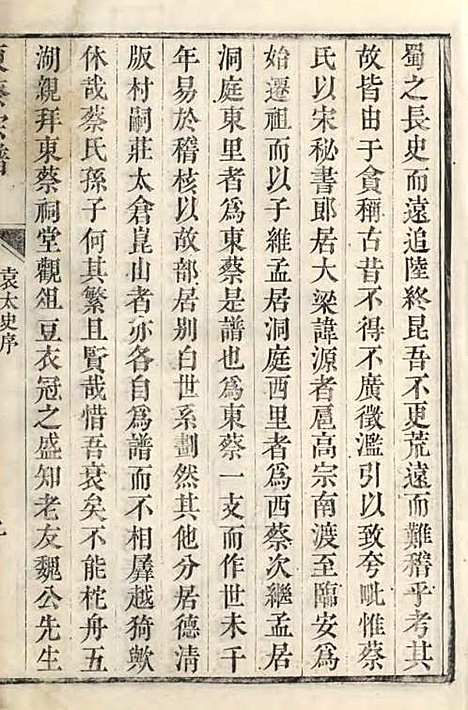 蜀之長史而遠追陸終昆吾不更荒遠而難稽乎考其
故皆由于貪稱古昔不得不廣徵濫引以致夸毗惟蔡
氏以宋秘書郎居大梁諱源者扈高宗南渡至臨安爲
始遷祖而以子維孟居洞庭西里者爲西蔡次繼孟居
洞庭東里者爲東蔡是譜也爲東蔡一支而作世未千
年易於稽核以故部居别白世系劃然其他分居德清
版村嗣莊太倉崑山者亦各自爲譜而不相孱越猗歟
休哉蔡氏孫子何其繁且賢哉惜吾衰矣不能柁舟五
湖親拜東蔡祠堂觀俎豆衣冠之盛知老友魏公先生
東蔡宗譜
袁太史序